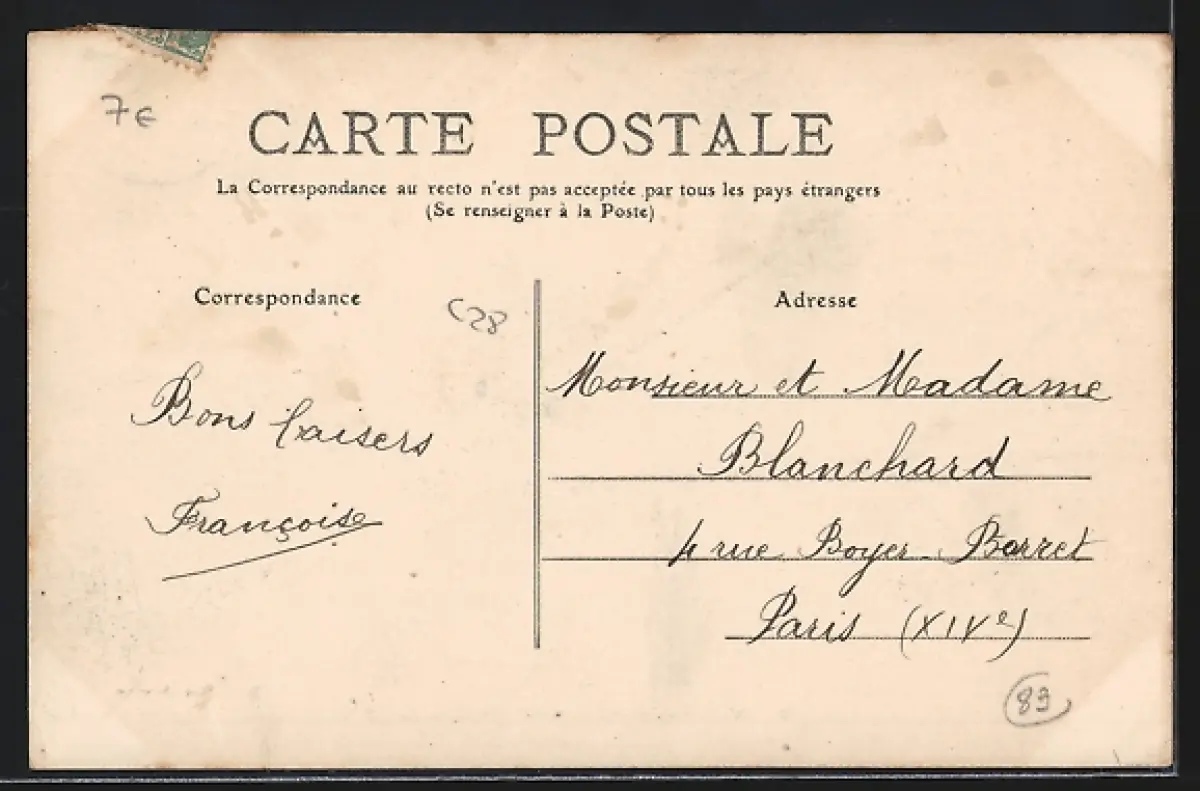 7€
CARTE POSTALE
La Correspondance au recto n'est pas acceptée par tous les pays étrangers
(Se renseigner à la Poste)
Correspondance
C28
Bons baisers
Françoise
Adresse
Monsieur et Madame
Blanchard
4 rue Boyer-Barret
Paris (XIVe)
89